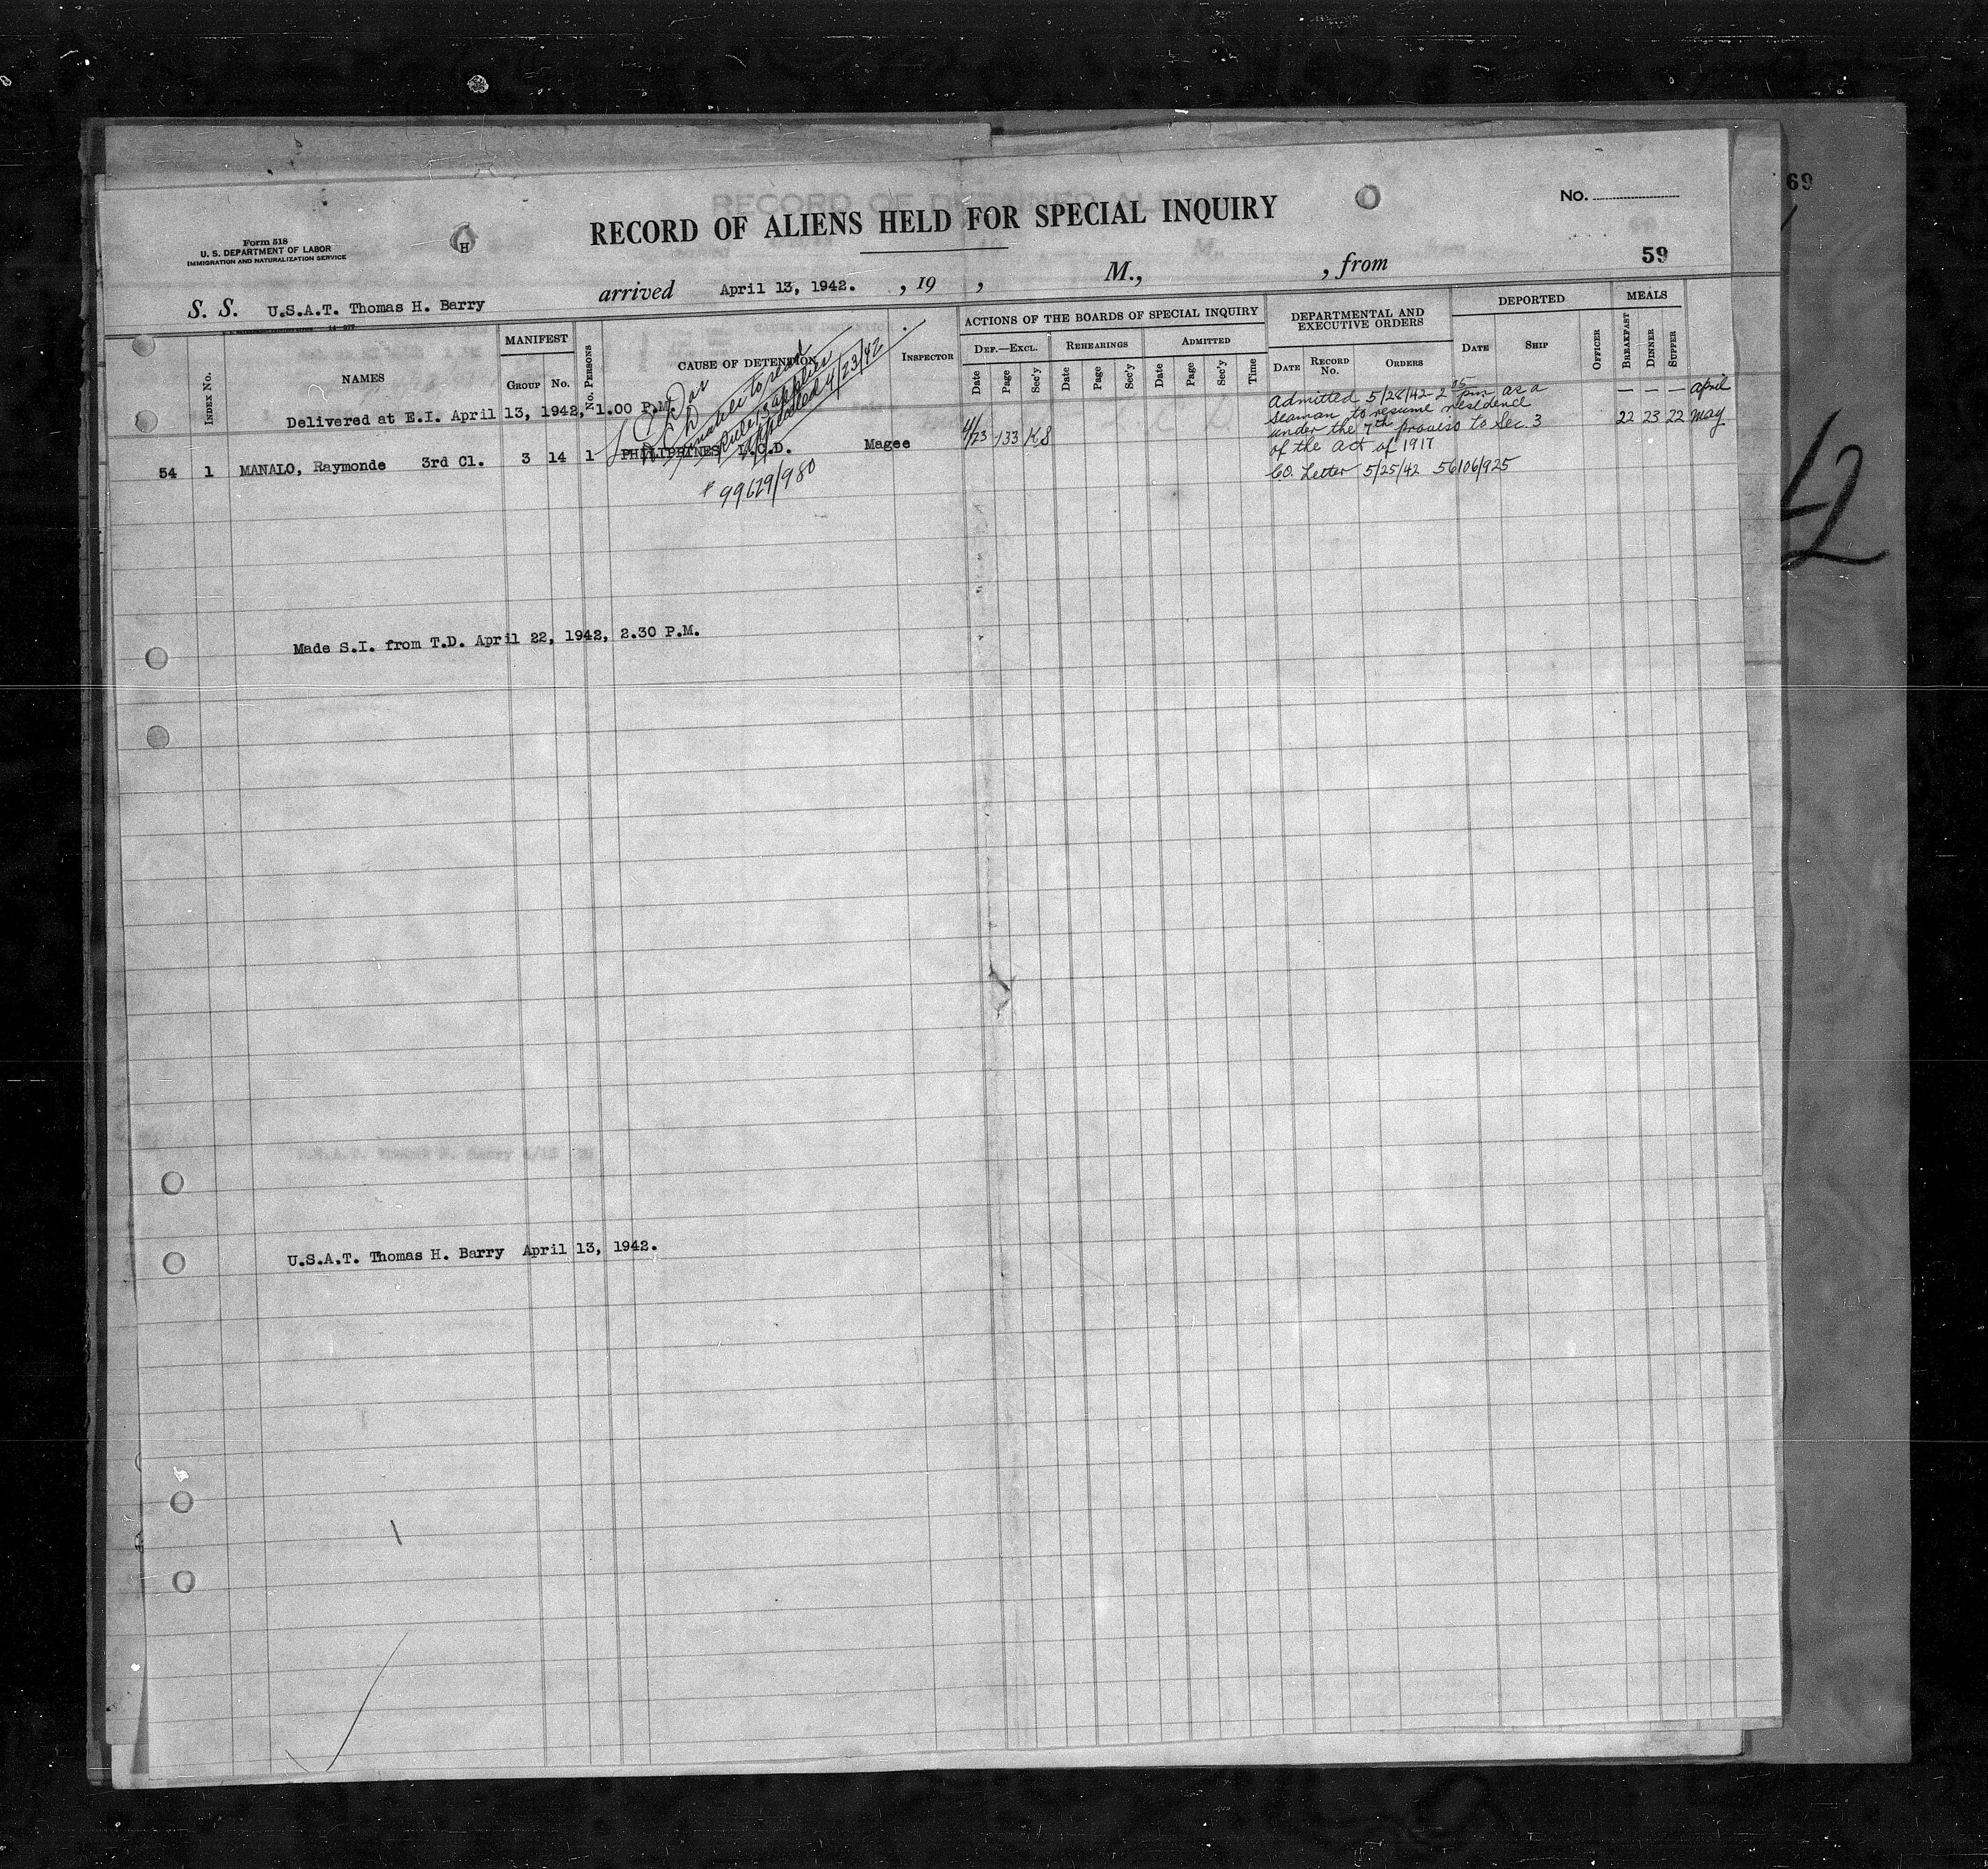 RECORD OF ALIENS HELD FOR SPECIAL INQUIRY
No.
69
59
Form 518
U. S. DEPARTMENT OF LABOR
IMMIGRATION AND NATURALIZATION SERVICE
H
S. S. U.S.A.T. Thomas H. Barry arrived April 13, 1942. , 19 , M., , from
INDEX No. NAMES MANIFEST GROUP No. No. PERSONS CAUSE OF DETENTION INSPECTOR
ACTIONS OF THE BOARDS OF SPECIAL INQUIRY
DEF.—EXCL. REHEARINGS ADMITTED
Date Page Sec'y Date Page Sec'y Date Page Sec'y Time
DEPARTMENTAL AND EXECUTIVE ORDERS
DATE RECORD No. ORDERS
DEPORTED
DATE SHIP OFFICER
MEALS
BREAKFAST DINNER SUPPER
Delivered at E.I. April 13, 1942, 1.00 P.M.
54 1 MANALO, Raymonde 3rd Cl. 3 14 1 PHILIPPINES L.C.D. Magee
unable to read
Rule 3 applies
Appealed 4/23/42
99629/980
4/23 133 KS
Admitted 5/28/42 2 05 pm as a
seaman to resume residence
under the 7th Proviso to Sec. 3
of the Act of 1917
CO. Letter 5/25/42 56106/925
— — — April
22 23 22 May
42
Made S.I. from T.D. April 22, 1942, 2.30 P.M.
U.S.A.T. Thomas H. Barry April 13, 1942.